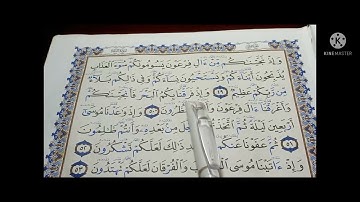 Made with
KINEMASTER
وَإِذْ نَجَّيْنَٰكُم مِّنْ ءَالِ فِرْعَوْنَ يَسُومُونَكُمْ سُوٓءَ ٱلْعَذَابِ
يُذَبِّحُونَ أَبْنَآءَكُمْ وَيَسْتَحْيُونَ نِسَآءَكُمْ وَفِى ذَٰلِكُم بَلَآءٌ
مِّن رَّبِّكُمْ عَظِيمٌ ٤٩ وَإِذْ فَرَقْنَا بِكُمُ ٱلْبَحْرَ فَأَنجَيْنَٰكُمْ
وَأَغْرَقْنَآ ءَالَ فِرْعَوْنَ ٥٠ وَإِذْ وَٰعَدْنَا مُوسَىٰٓ
أَرْبَعِينَ لَيْلَةً ثُمَّ مِنۢ بَعْدِهِۦ وَأَنتُمْ ظَٰلِمُونَ
٥١ ثُمَّ عَفَوْنَا عَنكُم ذَٰلِكَ لَعَلَّكُمْ تَشْكُرُونَ ٥٢
وَإِذْ ءَاتَيْنَا مُوسَى وَٱلْفُرْقَانَ لَعَلَّكُمْ تَهْتَدُونَ ٥٣